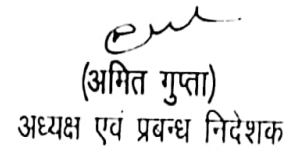 (अमित गुप्ता)
अध्यक्ष एवं प्रबन्ध निदेशक